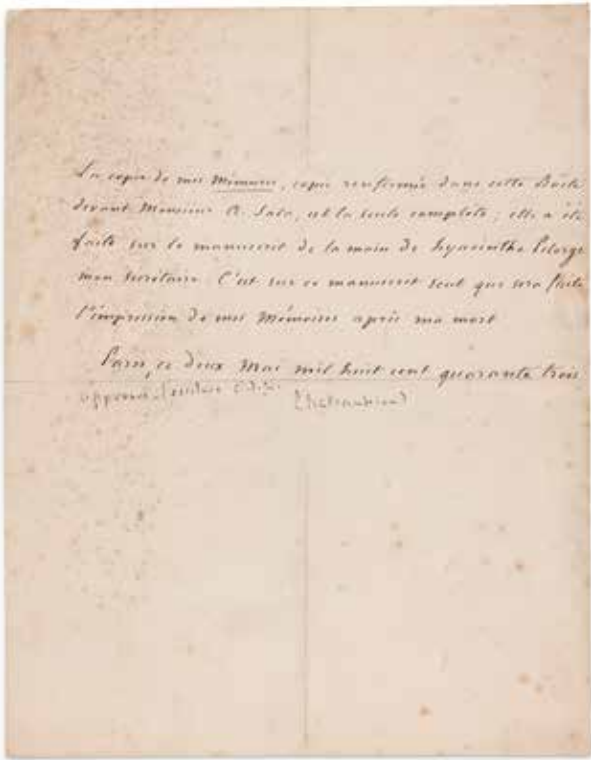 La copie de mes Mémoires, copie renfermée dans cette Boîte
devant Monsieur A. Sala, est la seule complète ; elle a été
faite sur le manuscrit de la main de hyacinthe Pilorge
mon secrétaire. C'est sur ce manuscrit seul que sera faite
l'impression de mes Mémoires après ma mort
Paris, ce deux Mai mil huit cent quarante trois
approuvé l'écriture
Chateaubriand